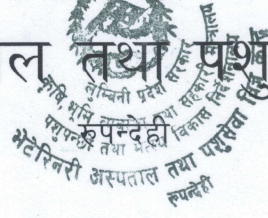 ल तथा पशु
रुपन्देही
लुम्बिनी प्रदेश सरकार
कृषि, भूमि तथा सहकारी
पशुपन्छी तथा मत्स्य विकास निर्देशनालय
भेटेरिनरी अस्पताल तथा पशुसेवा
रुपन्देही